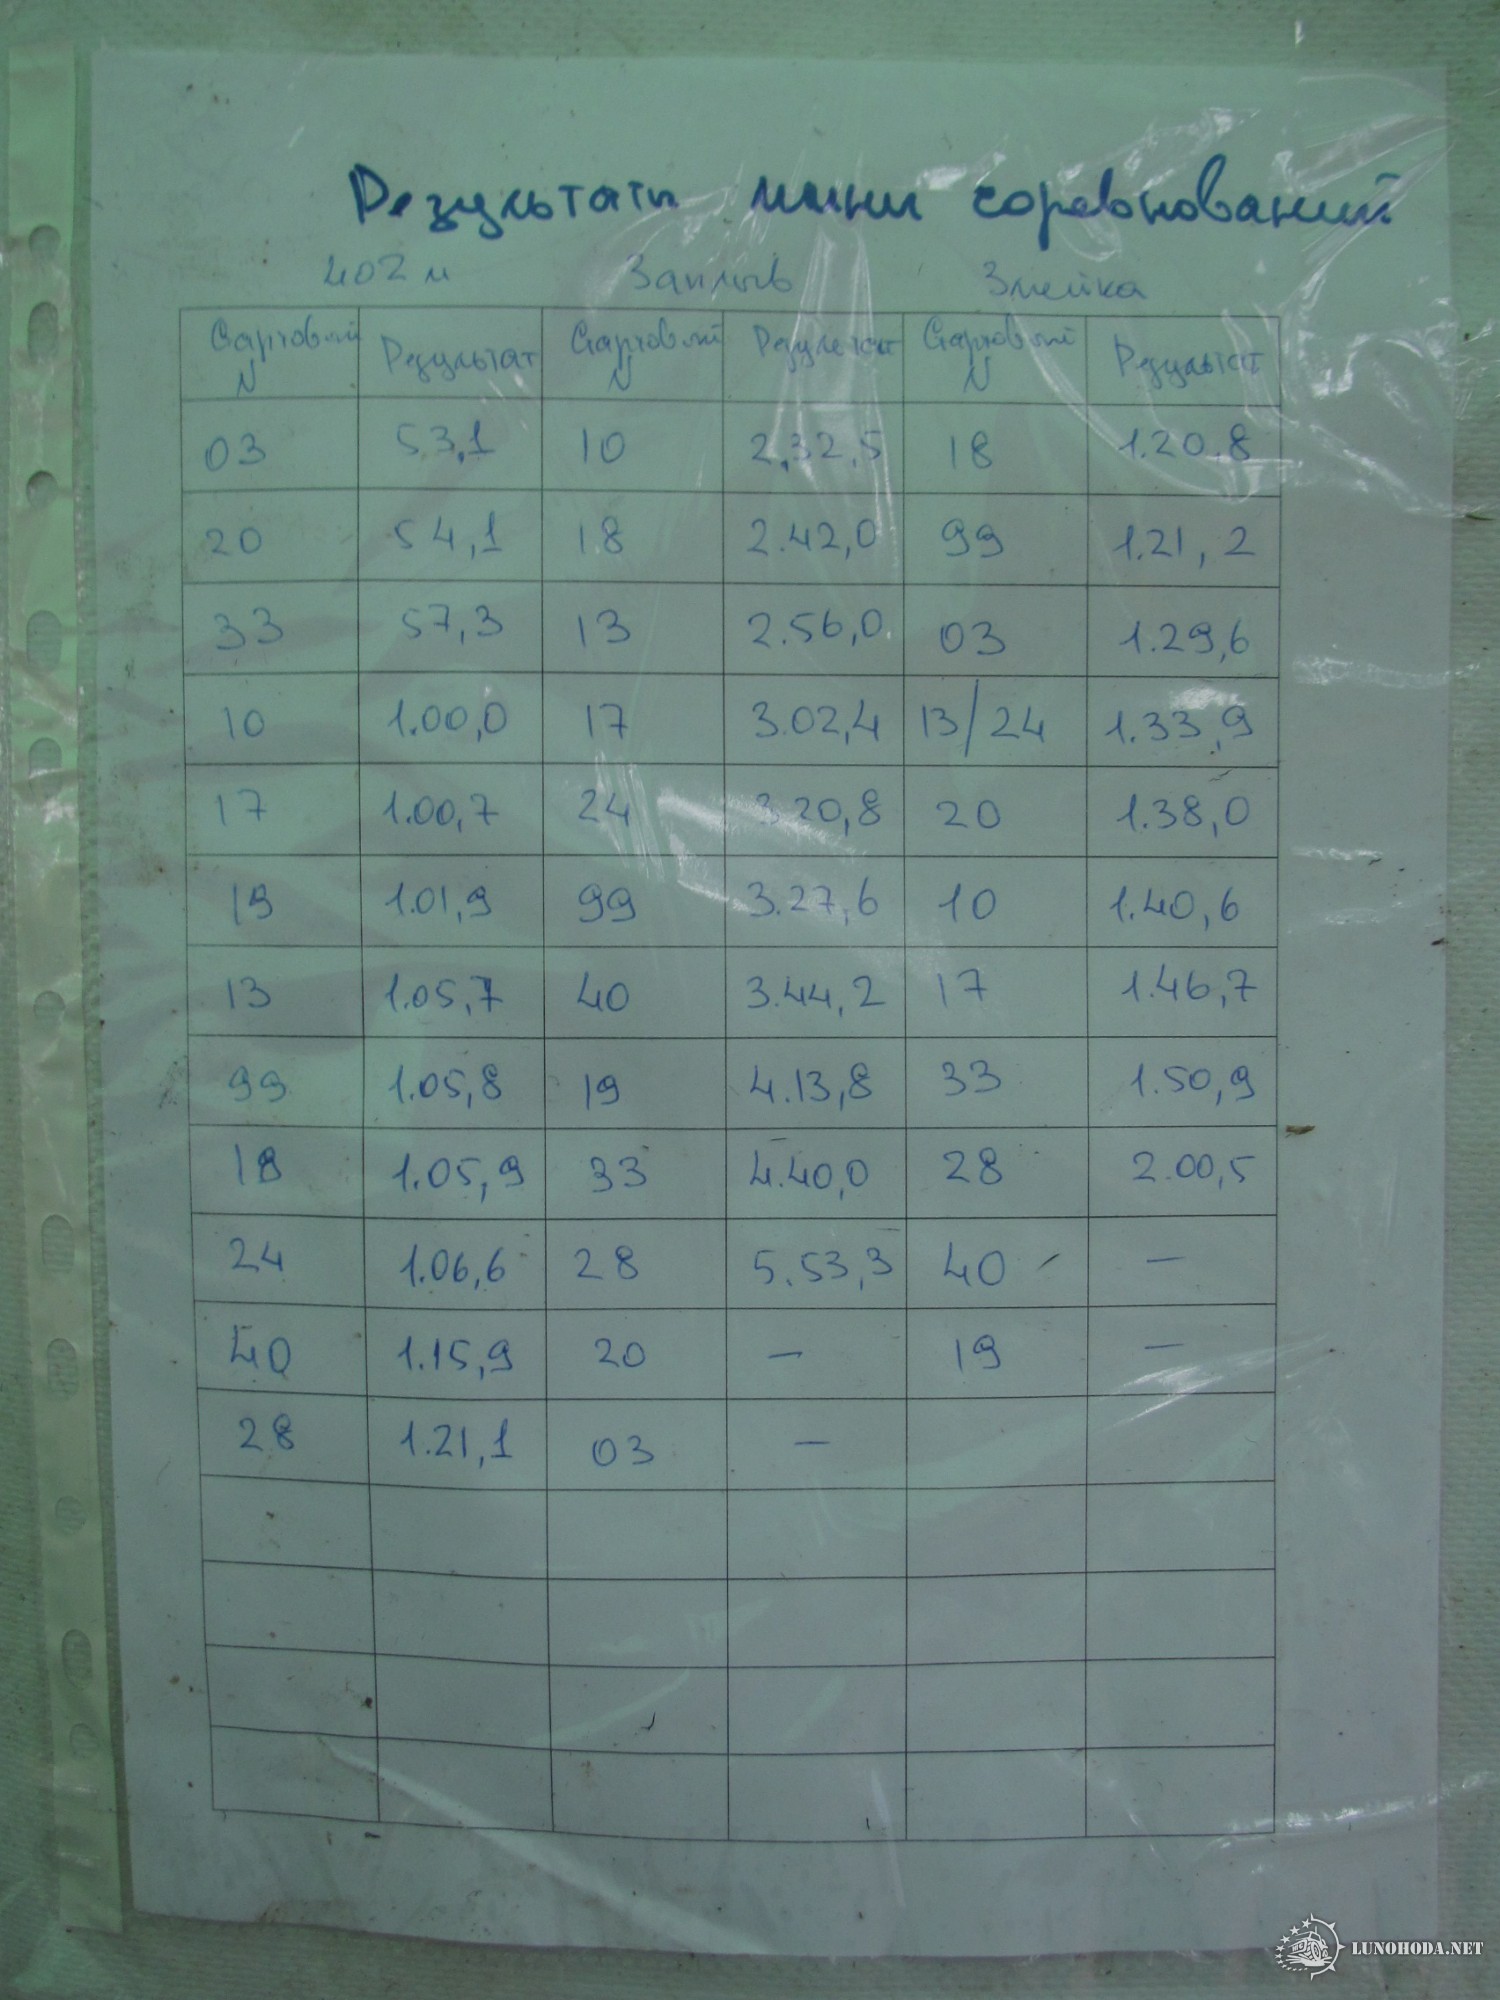 Результаты мини соревнований
402 м Заплыв Змейка
Стартовый N Результат Стартовый N Результат Стартовый N Результат
03 53,1 10 2.32,5 18 1.20,8
20 54,1 18 2.42,0 99 1.21,2
33 57,3 13 2.56,0 03 1.29,6
10 1.00,0 17 3.02,4 13/24 1.33,9
17 1.00,7 24 3.20,8 20 1.38,0
19 1.01,9 99 3.27,6 10 1.40,6
13 1.05,7 40 3.44,2 17 1.46,7
99 1.05,8 19 4.13,8 33 1.50,9
18 1.05,9 33 4.40,0 28 2.00,5
24 1.06,6 28 5.53,3 40 —
40 1.15,9 20 — 19 —
28 1.21,1 03 —
LUNOHODA.NET